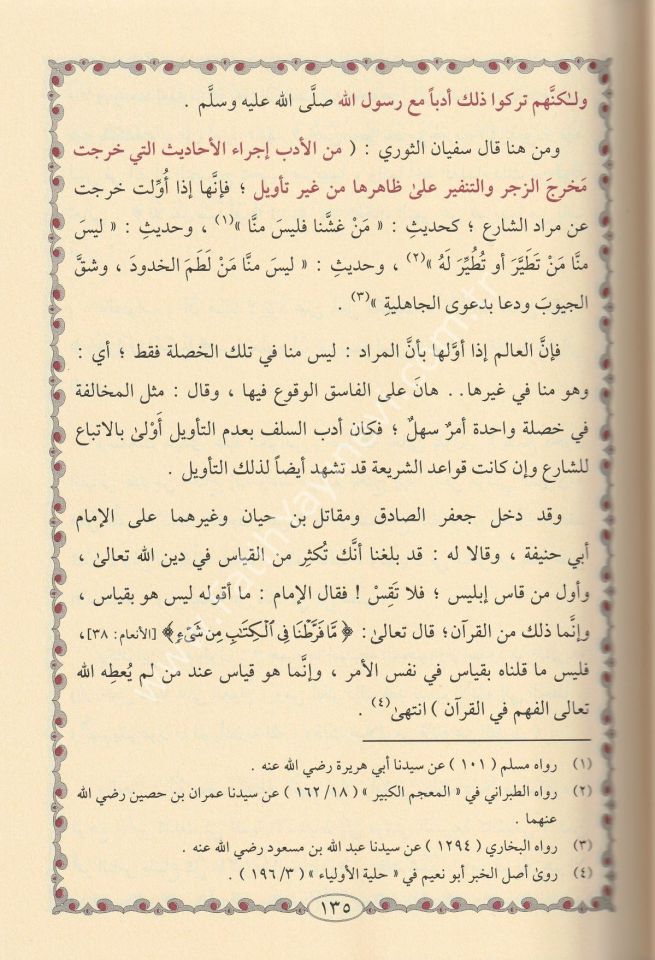 ولـٰكنَّهم تركوا ذلك أدباً مع رسول الله صلَّى الله عليه وسلَّم .
ومن هنا قال سفيان الثوري : ( من الأدب إجراء الأحاديث التي خرجت
مَخرجَ الزجر والتنفير علىٰ ظاهرها من غير تأويل ؛ فإنَّها إذا أُوِّلت خرجت
عن مراد الشارع ؛ كحديثِ : « مَنْ غشَّنا فليسَ منَّا »(١) ، وحديثِ : « ليسَ
منَّا مَنْ تَطَيَّرَ أو تُطُيِّرَ لَهُ »(٢) ، وحديثِ : « ليسَ منَّا مَنْ لَطَمَ الخدودَ ، وشقَّ
الجيوبَ ودعا بدعوى الجاهليةِ »(٣) .
فإنَّ العالم إذا أوَّلها بأنَّ المراد : ليس منا في تلك الخصلة فقط ؛ أي :
وهو منا في غيرها.. هانَ على الفاسق الوقوع فيها ، وقال : مثل المخالفة
في خصلة واحدة أمرٌ سهلٌ ؛ فكان أدب السلف بعدم التأويل أَوْلىٰ بالاتباع
للشارع وإن كانت قواعد الشريعة قد تشهد أيضاً لذلك التأويل .
وقد دخل جعفر الصادق ومقاتل بن حيان وغيرهما على الإمام
أبي حنيفة ، وقالا له : قد بلغنا أنَّك تُكثِر من القياس في دين الله تعالىٰ ،
وأول من قاس إبليس ؛ فلا تَقِسْ ! فقال الإمام : ما أقوله ليس هو بقياس ،
وإنَّما ذلك من القرآن؛ قال تعالىٰ: ﴿ مَّا فَرَّطْنَا فِي ٱلْكِتَٰبِ مِن شَيْءٍ ﴾ [الأنعام: ٣٨]،
فليس ما قلناه بقياس في نفس الأمر ، وإنَّما هو قياس عند من لم يُعطِه الله
تعالى الفهم في القرآن ) انتهىٰ(٤) .
(١) رواه مسلم ( ١٠١ ) عن سيدنا أبي هريرة رضي الله عنه .
(٢) رواه الطبراني في « المعجم الكبير » ( ١٦٢/١٨ ) عن سيدنا عمران بن حصين رضي الله
عنهما .
(٣) رواه البخاري ( ١٢٩٤ ) عن سيدنا عبد الله بن مسعود رضي الله عنه .
(٤) روىٰ أصل الخبر أبو نعيم في « حلية الأولياء » ( ١٩٦/٣ ) .
١٣٥